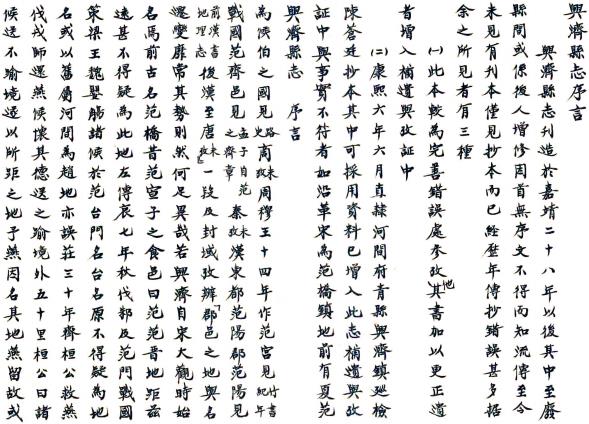 興濟縣志序言
興濟縣志刊造於嘉靖二十八年以後其中至廢
縣間或係後人增修因首無序文不得而知流傳至今
未見有刊本僅見抄本而已經歷年傳抄錯誤甚多據
余之所見者有三種
㈠此本較為完善錯誤處參攷其他書加以更正遺
者增入補遺與攷証中
㈡康熙六年六月直隸河間府青縣興濟鎮廵檢
陳蒼廷抄本其中可採用資料已增入此志補遺與攷
証中與事實不符者如沿革宋為范橋鎮地前有夏范
為侯伯之國見路史周攷周穆王十四年作范宮見竹書紀年
興濟縣志 序言
戰國范齊邑見孟子自范之齊章秦攷未漢東都范陽郡范陽見
前漢書地理志後漢至唐攷未一段及封域攷辨「郡邑之地與名
遷變靡常其勢則然何足異哉若興濟自宋大觀時始
名焉前古名范橋昔范宣子之食邑曰范范晉地距茲
遠甚不得疑為此地左傳哀七年秋伐邾及范門戰國
策梁王魏嬰觴諸侯於范台門名台名原不得疑為地
名或以舊屬河間為趙地亦誤莊三十年齊桓公救燕
伐戎師還燕候懷其德送之踰境外五十里桓公曰諸
候送不踰境遂以所距之地予燕因名其地燕留故或